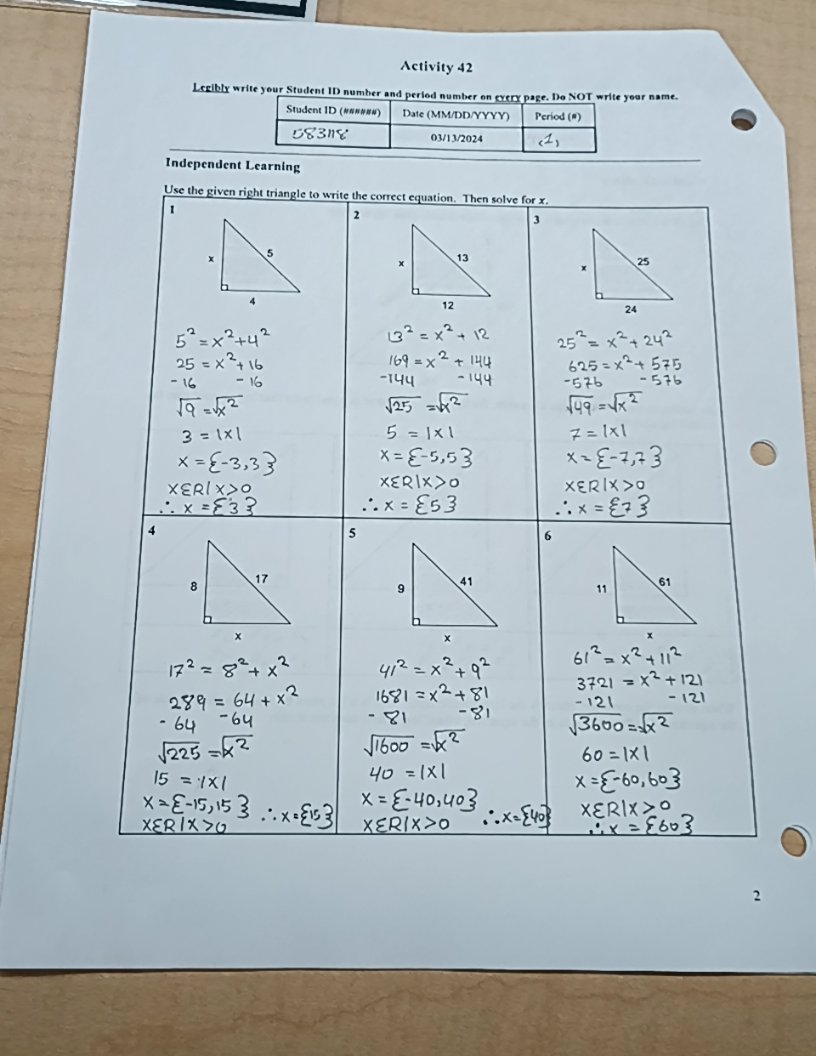 Activity 42
Legibly write your Student ID number and period number on every page. Do NOT write your name.
Student ID (######) Date (MM/DD/YYYY) Period (#)
583118 03/13/2024 (1)
Independent Learning
Use the given right triangle to write the correct equation. Then solve for x.
1
x 5
4
5² = x² + 4²
25 = x² + 16
-16 -16
√9 = √x²
3 = |x|
x = {-3,3}
xεR|x>0
∴ x = {3}
2
x 13
12
13² = x² + 12
169 = x² + 144
-144 -144
√25 = √x²
5 = |x|
x = {-5,5}
xεR|x>0
∴ x = {5}
3
x 25
24
25² = x² + 24²
625 = x² + 575
-576 -576
√49 = √x²
7 = |x|
x = {-7,7}
xεR|x>0
∴ x = {7}
4
8 17
x
17² = 8² + x²
289 = 64 + x²
-64 -64
√225 = √x²
15 = |x|
x = {-15,15} ∴ x = {15}
xεR|x>0
5
9 41
x
41² = x² + 9²
1681 = x² + 81
-81 -81
√1600 = √x²
40 = |x|
x = {-40,40}
xεR|x>0 ∴ x = {40}
6
11 61
x
61² = x² + 11²
3721 = x² + 121
-121 -121
√3600 = √x²
60 = |x|
x = {-60,60}
xεR|x>0
∴ x = {60}
2